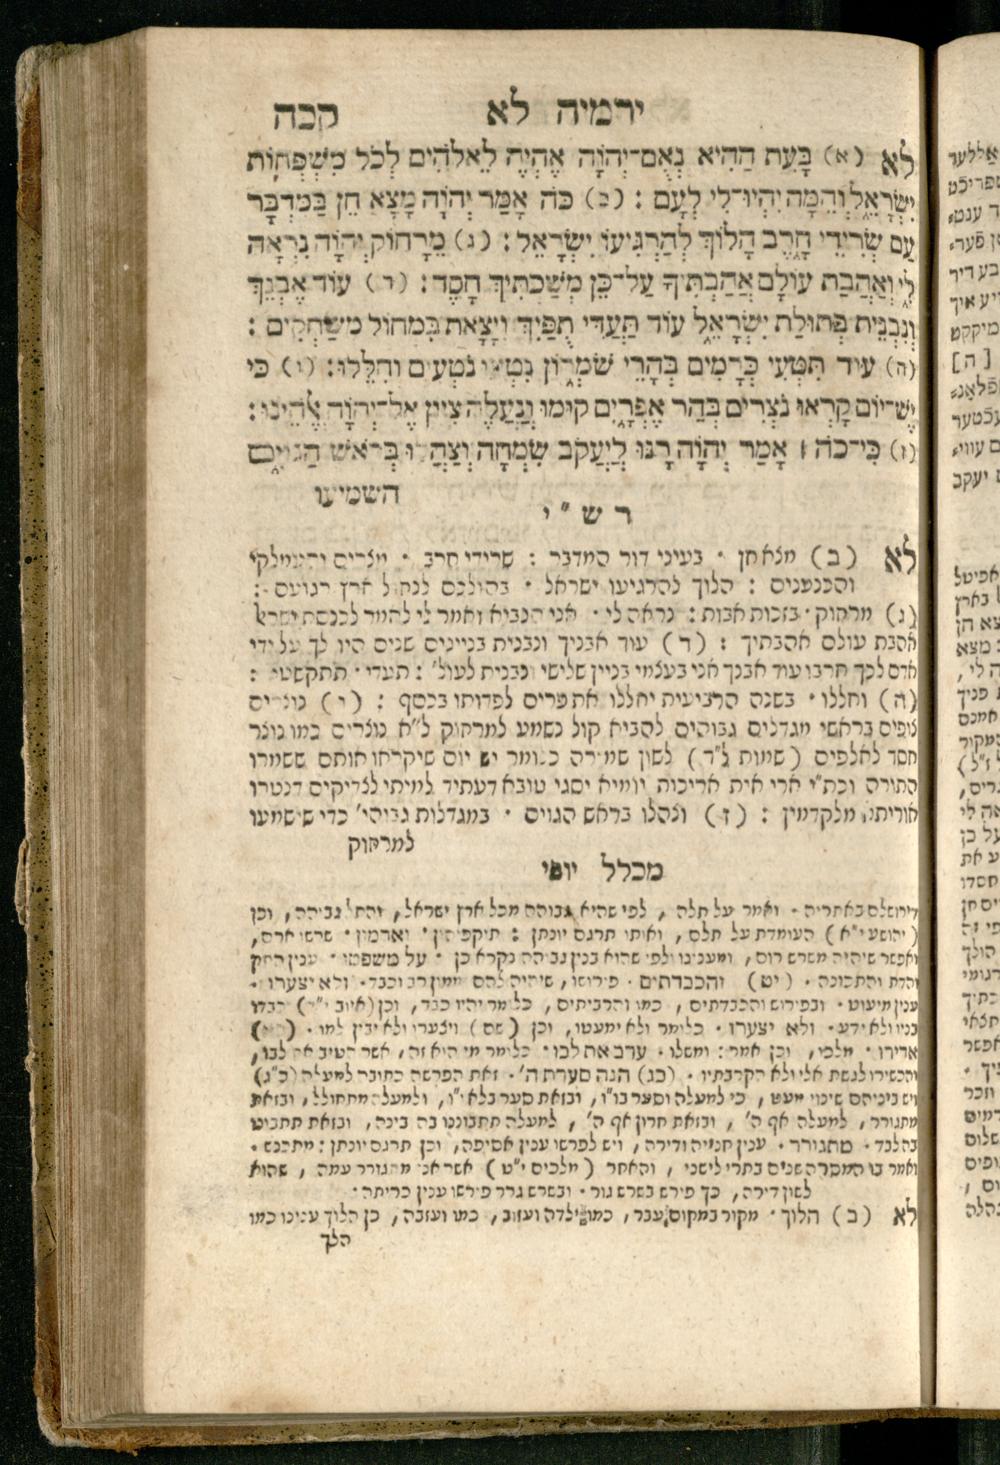 ירמיה לא קכה
לא (א) בָּעֵת הַהִיא נְאֻם־יְהוָֹה אֶהְיֶה לֵאלֹהִים לְכֹל מִשְׁפְּחוֹת
יִשְׂרָאֵל וְהֵמָּה יִהְיוּ־לִי לְעָם : (ב) כֹּה אָמַר יְהוָֹה מָצָא חֵן בַּמִּדְבָּר
עַם שְׂרִידֵי חָרֶב הָלוֹךְ לְהַרְגִּיעוֹ יִשְׂרָאֵל : (ג) מֵרָחוֹק יְהוָֹה נִרְאָה
לִי וְאַהֲבַת עוֹלָם אֲהַבְתִּיךְ עַל־כֵּן מְשַׁכְתִּיךְ חָסֶד : (ד) עוֹד אֶבְנֵךְ
וְנִבְנֵית בְּתוּלַת יִשְׂרָאֵל עוֹד תַּעְדִּי תֻפַּיִךְ וְיָצָאת בִּמְחוֹל מְשַׂחֲקִים :
(ה) עוֹד תִּטְּעִי כְרָמִים בְּהָרֵי שֹׁמְרוֹן נָטְעוּ נֹטְעִים וְחִלֵּלוּ : (ו) כִּי
יֶשׁ־יוֹם קָרְאוּ נֹצְרִים בְּהַר אֶפְרָיִם קוּמוּ וְנַעֲלֶה צִיּוֹן אֶל־יְהוָֹה אֱלֹהֵינוּ :
(ז) כִּי־כֹה ׀ אָמַר יְהוָֹה רָנּוּ לְיַעֲקֹב שִׂמְחָה וְצַהֲלוּ בְּרֹאשׁ הַגּוֹיִם
השמיעו
רש"י
לא (ב) מצא חן . בעיני דור המדבר : שרידי חרב . מצרים והעמלקי
והכנענים : הלוך להרגיעו ישראל . בהולכם לנחול ארץ רגועם :
(ג) מרחוק . בזכות אבות : נראה לי . אני הנביא ואמר לי לאמר לכנסת ישראל
אהבת עולם אהבתיך : (ד) עוד אבניך ונבנית בניינים שנים היו לך על ידי
אדם לכך חרבו עוד אבנך אני בעצמי בניין שלישי ונבנית לעול' : תעדי . תתקשטי :
(ה) וחללו . בשנה הרביעית יחללו את פרים לפדותו בכסף : (ו) נוצרים
צופים בראשי מגדלים גבוהים להביא קול נשמע למרחוק ל"א נוצרים כמו נוצר
חסד לאלפים (שמות ל"ד) לשון שמירה כלומר יש יום שיקראו אותם ששמרו
התורה וכת"י ארי אית אריכות יומיא יסגי טובא דעתיד למיתי לצדיקים דנטרו
אוריתי מלקדמין : (ז) וצהלו בראש הגוים . במגדלות גביהי' כדי שישמעו
למרחוק
מכלל יופי
דירושלם באתריה . ואמר על תלה , לפי שהיא גבוהה מכל ארץ ישראל , והתל גביהה , וכן
(יהושע י"א) העומדת על תלם , ואיתו תרגם יונתן : תיקפיהון . וארמון . שרשו ארם ,
ואפשר שיהיה משרש רום , ומענינו ולפי שהוא בנין גביהה נקרא כן . על משפטו . ענין החק
והדת והתכונה . (יט) והכבדתים . פירושו , שיהיה להם ממון רב וכבד . ולא יצערו .
ענין מיעוט . ובפירוש והכבדתים , כמו והרביתים , כלומר יהיו כבד , וכן (איוב י"ד) יכבדו
בניו ולא ידע . ולא יצערו . כלומר ולא ימעטו , וכן (שם) ויצערו ולא יבין למו .
אדירו . מלכי , וכן אמר : ומשלו . ערב את לבו . כלומר מי הוא זה , אשר הטיב את לבו ,
והכשירו לגשת אלי ולא הקרבתיו . (כג) הנה סערת ה' . זאת הפרשה כתובה למעלה (כ"ג)
ויש ביניהם שינוי מעט , כי למעלה וסער בו"ו , ובזאת סער בלא ו"ו , ולמעלה מתחולל , ובזאת
מתגורר , למעלה אף ה' , ובזאת חרון אף ה' , למעלה תתבוננו בה בינה , ובזאת תתבוננו
בה לבד . מתגורר . ענין חנייה ודירה , ויש לפרשו ענין אסיפה , וכן תרגם יונתן : מתכנש .
ואמר בו המסרה שנים בתרי לישני , והאחר (מלכים י"ט) אשר אני מתגורר עמה , שהוא
לשון דירה , כך פירש בשרש גור . ובשרש גרר פירשו ענין כריתה .
לא (ב) הלוך . מקור במקום עבר , כמו ילדה ועזוב , כמו ועזבה , כן הלוך ענינו כמו
הלך